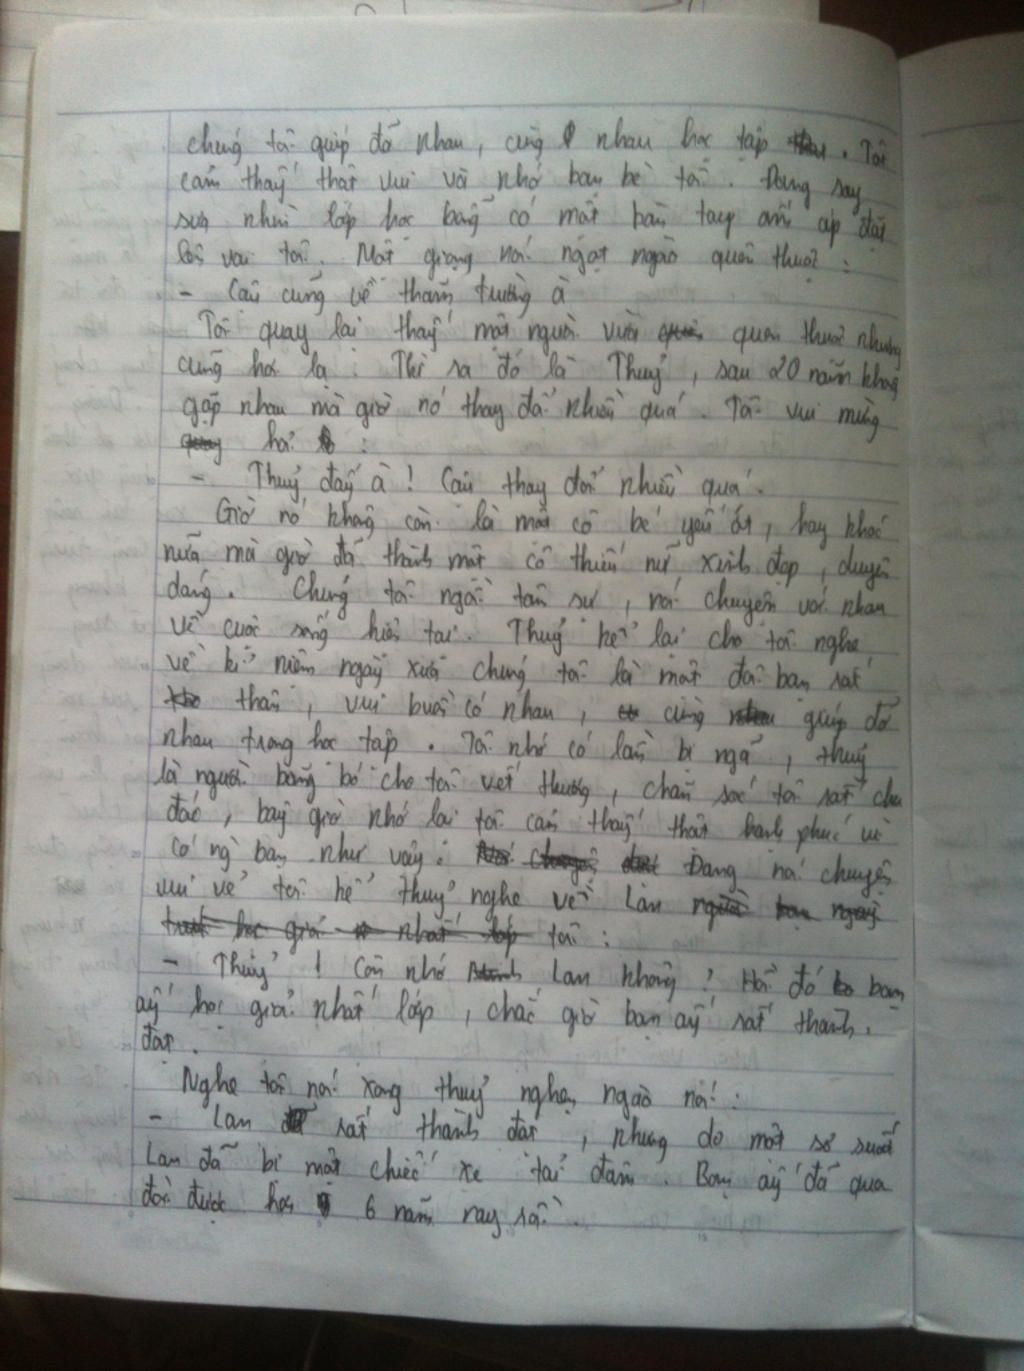 chúng tôi giúp đỡ nhau, cùng nhau học tập. Tôi
cảm thấy thật vui và nhớ bạn bè tôi. Đang say
sưa nhìn lớp học bỗng có một bàn tay ấm áp đặt
lên vai tôi. Một giọng nói ngọt ngào quen thuộc:
- Cậu cũng về thăm trường à
Tôi quay lại thấy một người vừa quen thuộc nhưng
cũng hơi lạ. Thì ra đó là Thuỷ, sau 20 năm không
gặp nhau mà giờ nó thay đổi nhiều quá. Tôi vui mừng
hỏi:
- Thuỷ đấy à! Cậu thay đổi nhiều quá.
Giờ nó không còn là một cô bé yếu ớt, hay khóc
nữa mà giờ đã thành một cô thiếu nữ xinh đẹp, duyên
dáng. Chúng tôi ngồi tâm sự, nói chuyện với nhau
về cuộc sống hiện tại. Thuỷ kể lại cho tôi nghe
về kỉ niệm ngày xưa chúng tôi là một đôi bạn rất
thân, vui buồn có nhau, cùng giúp đỡ
nhau trong học tập. Tôi nhớ có lần bị ngã, thuỷ
là người băng bó cho tôi vết thương, chăm sóc tôi rất chu
đáo, bây giờ nhớ lại tôi cảm thấy thật hạnh phúc vì
có ng bạn như vậy. Đang nói chuyện
vui vẻ tôi kể thuỷ nghe về Lan
tôi:
- Thuỷ! Còn nhớ Lan không? Hồi đó bạn
ấy học giỏi nhất lớp, chắc giờ bạn ấy rất thành
đạt.
Nghe tôi nói xong thuỷ nghẹn ngào nói:
- Lan rất thành đạt, nhưng do một sơ suất
Lan đã bị một chiếc xe tải đâm. Bạn ấy đã qua
đời được hơn 6 năm nay rồi.